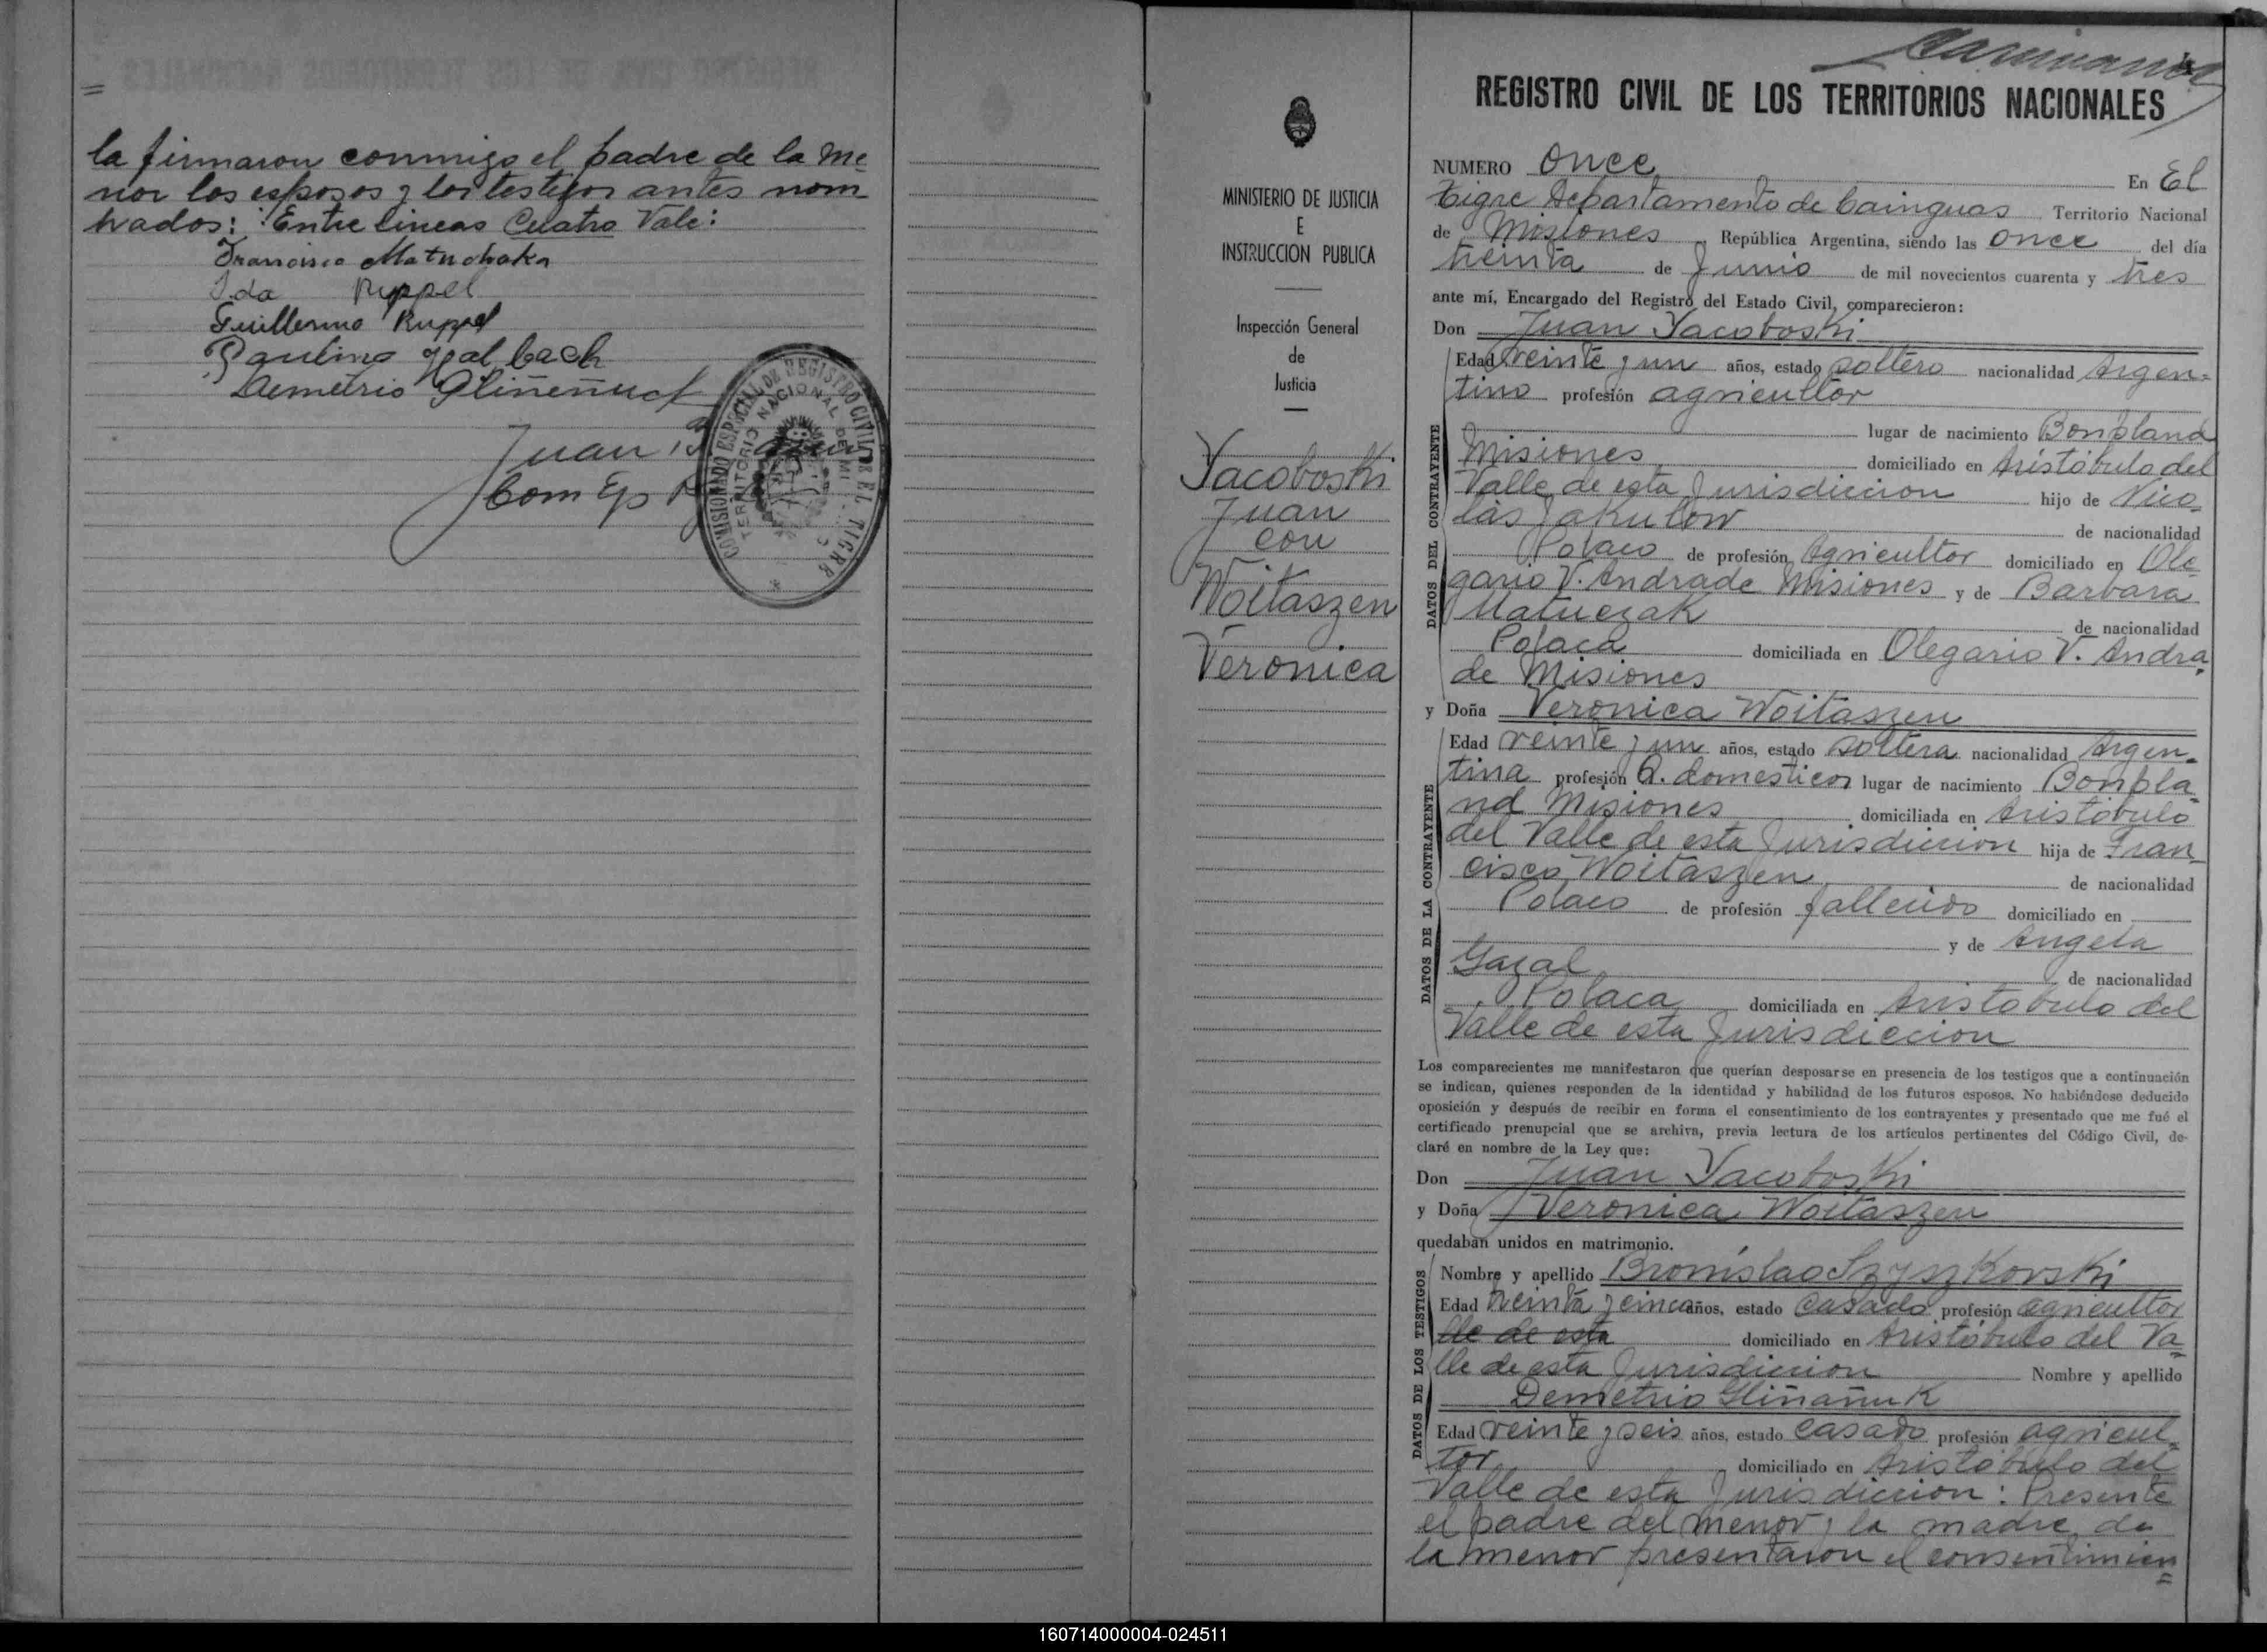 =
la firmaron conmigo el padre de la me
nor los esposos y los testigos antes nom
brados: Entre lineas Cuatro Vale:
Francisco Matuchaka
Ida Ruppel
Guillermo Ruppel
Paulino Halbach
Demetrio Gliñeñuck
Juan B.
Com Esp R
COMISIONADO ESPECIAL DE REGISTRO CIVIL DE EL TIGRE
TERRITORIO NACIONAL DE MI
MINISTERIO DE JUSTICIA
E
INSTRUCCION PUBLICA
Inspección General
de
Justicia
Yacoboski
Juan
con
Woitaszen
Veronica
REGISTRO CIVIL DE LOS TERRITORIOS NACIONALES
NUMERO Once En El
Tigre Departamento de Cainguas Territorio Nacional
de Misiones, República Argentina, siendo las once del día
treinta de Junio de mil novecientos cuarenta y tres
ante mí, Encargado del Registro del Estado Civil, comparecieron:
Don Juan Yacoboski
DATOS DEL CONTRAYENTE
Edad veinte y un años, estado soltero nacionalidad Argen-
tino profesión agricultor
lugar de nacimiento Bonpland
Misiones domiciliado en Aristóbulo del
Valle de esta Jurisdiccion hijo de Nico-
las Jakubow de nacionalidad
Polaco de profesión Agricultor domiciliado en Ole-
gario V. Andrade Misiones y de Barbara
Matuczak de nacionalidad
Polaca domiciliada en Olegario V. Andra-
de Misiones
y Doña Veronica Woitaszen
DATOS DE LA CONTRAYENTE
Edad veinte y un años, estado soltera nacionalidad Argen-
tina profesión Q. domesticos lugar de nacimiento Bonpla-
nd Misiones domiciliada en Aristóbulo
del Valle de esta Jurisdiccion hija de Fran-
cisco Woitaszen de nacionalidad
Polaco de profesión fallecido domiciliado en
y de Angela
Gazal de nacionalidad
Polaca domiciliada en Aristobulo del
Valle de esta Jurisdiccion
Los comparecientes me manifestaron que querían desposarse en presencia de los testigos que a continuación
se indican, quienes responden de la identidad y habilidad de los futuros esposos. No habiéndose deducido
oposición y después de recibir en forma el consentimiento de los contrayentes y presentado que me fué el
certificado prenupcial que se archiva, previa lectura de los artículos pertinentes del Código Civil, de-
claré en nombre de la Ley que:
Don Juan Yacoboski
y Doña Veronica Woitaszen
quedaban unidos en matrimonio.
DATOS DE LOS TESTIGOS
Nombre y apellido Bronislao Szyszkovski
Edad treinta y cinco años, estado casado profesión agricultor
lle de esta domiciliado en Aristóbulo del Va-
lle de esta Jurisdiccion Nombre y apellido
Demetrio Gliñañuk
Edad veinte y seis años, estado casado profesión agricul-
tor domiciliado en Aristóbulo del
Valle de esta Jurisdiccion: Presente
el padre del menor y la madre de
la menor presentaron el consentimien=
160714000004-024511